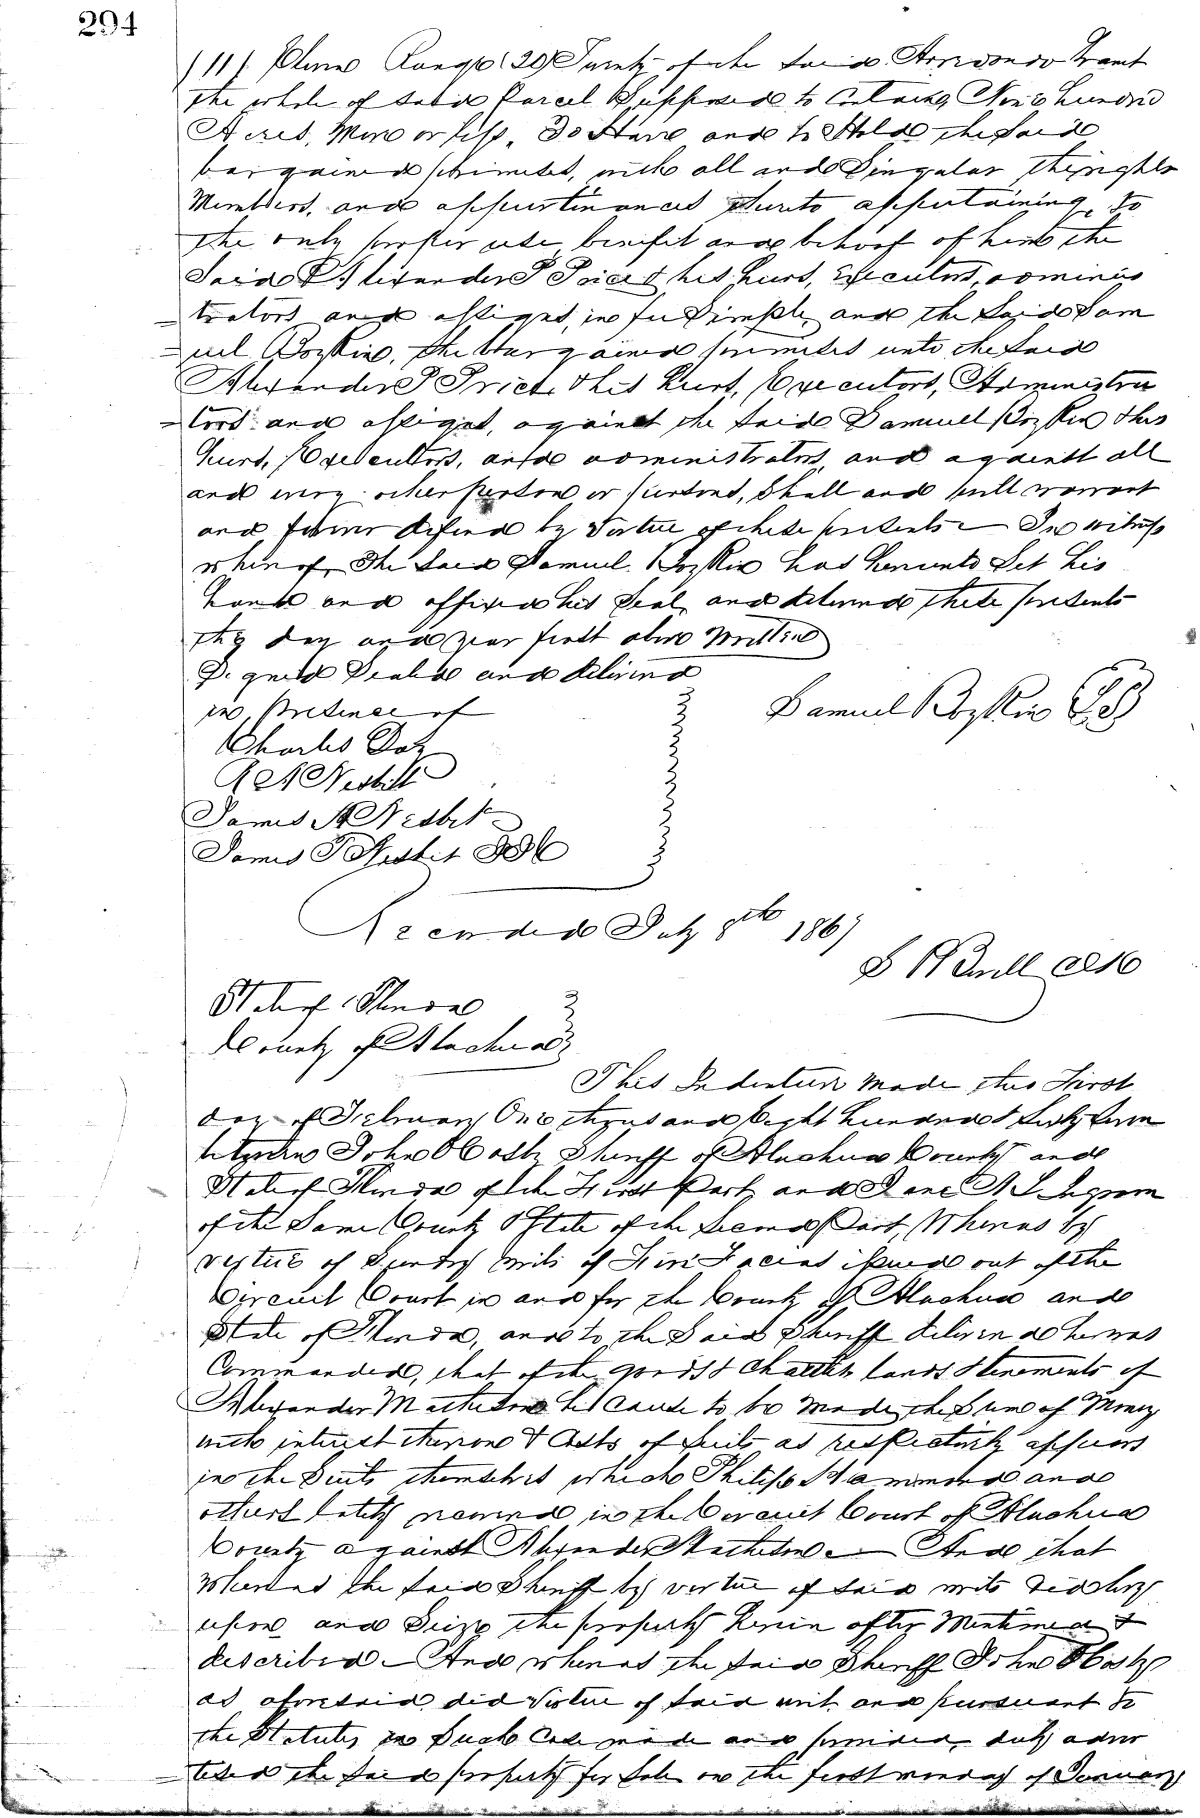 294
(11) Eleven Range (20) Twenty of the Said Arredondo Grant
the whole of Said Parcel Supposed to Containg Nine hundred
Acres, More or less. To Have and to Hold the Said
bargained primises, with all and Singular the rights
Members, and appurtinances thereto appertaining, to
the only proper use, benifit and behoof of him the
Said Alexander P Price & his heirs, Executors, adminis
= trators and assigns, in fee Simple, and the Said Sam
= uel Boykin, the bargained primises unto the Said
Alexander P Price & his heirs, Executors, Administra
= tors and assigns, against the Said Samuel Boykin & his
heirs, Executors, and administrators, and against all
and every other person or persons, Shall and will warrant
and forever defend by Virtue of these presents — In witness
whereof, The Said Samuel Boykin has hereunto Set his
hand and affixed his Seal, and delivered these presents
the day and year first above Written
Signed Sealed and delivered
in Presence of
Samuel Boykin (LS)
Charles Day
R A Nesbitt
James A Nesbit
James T Nesbit JIC
Recorded July 8th 1867
Clk
State of Florida
County of Alachua
This Indenture Made this First
day of February One thousand Eight hundred & Sixty Seven
between John B Cosby Sheriff of Alachua County and
State of Florida of the First Part, and Jane A L Ingram
of the Same County & State of the Second Part, Whereas by
vertue of Sundry writs of Fieri Facias issued out of the
Circuit Court in and for the County of Alachua and
State of Florida, and to the Said Sheriff delivered he was
Commanded, that of the goods & chattels lands & tenements of
Alexander Matheson he cause to be made, the Sum of Money
with interest thereon & Costs of Suits as respectively appears
in the Suits themselves which Philip Hammond and
others lately recoverd in the Circuit Court of Alachua
County against Alexander Matheson — And that
Whereas the Said Sheriff by vertue of Said writs did levy
upon and Seize the property herein after Mentioned &
described — And whereas the Said Sheriff John B Cosby
as aforesaid did Virtue of Said writ and pursuant to
the Statutes in Such Case made and provided, duly adver
= tised the Said property for Sale on the first monday of January